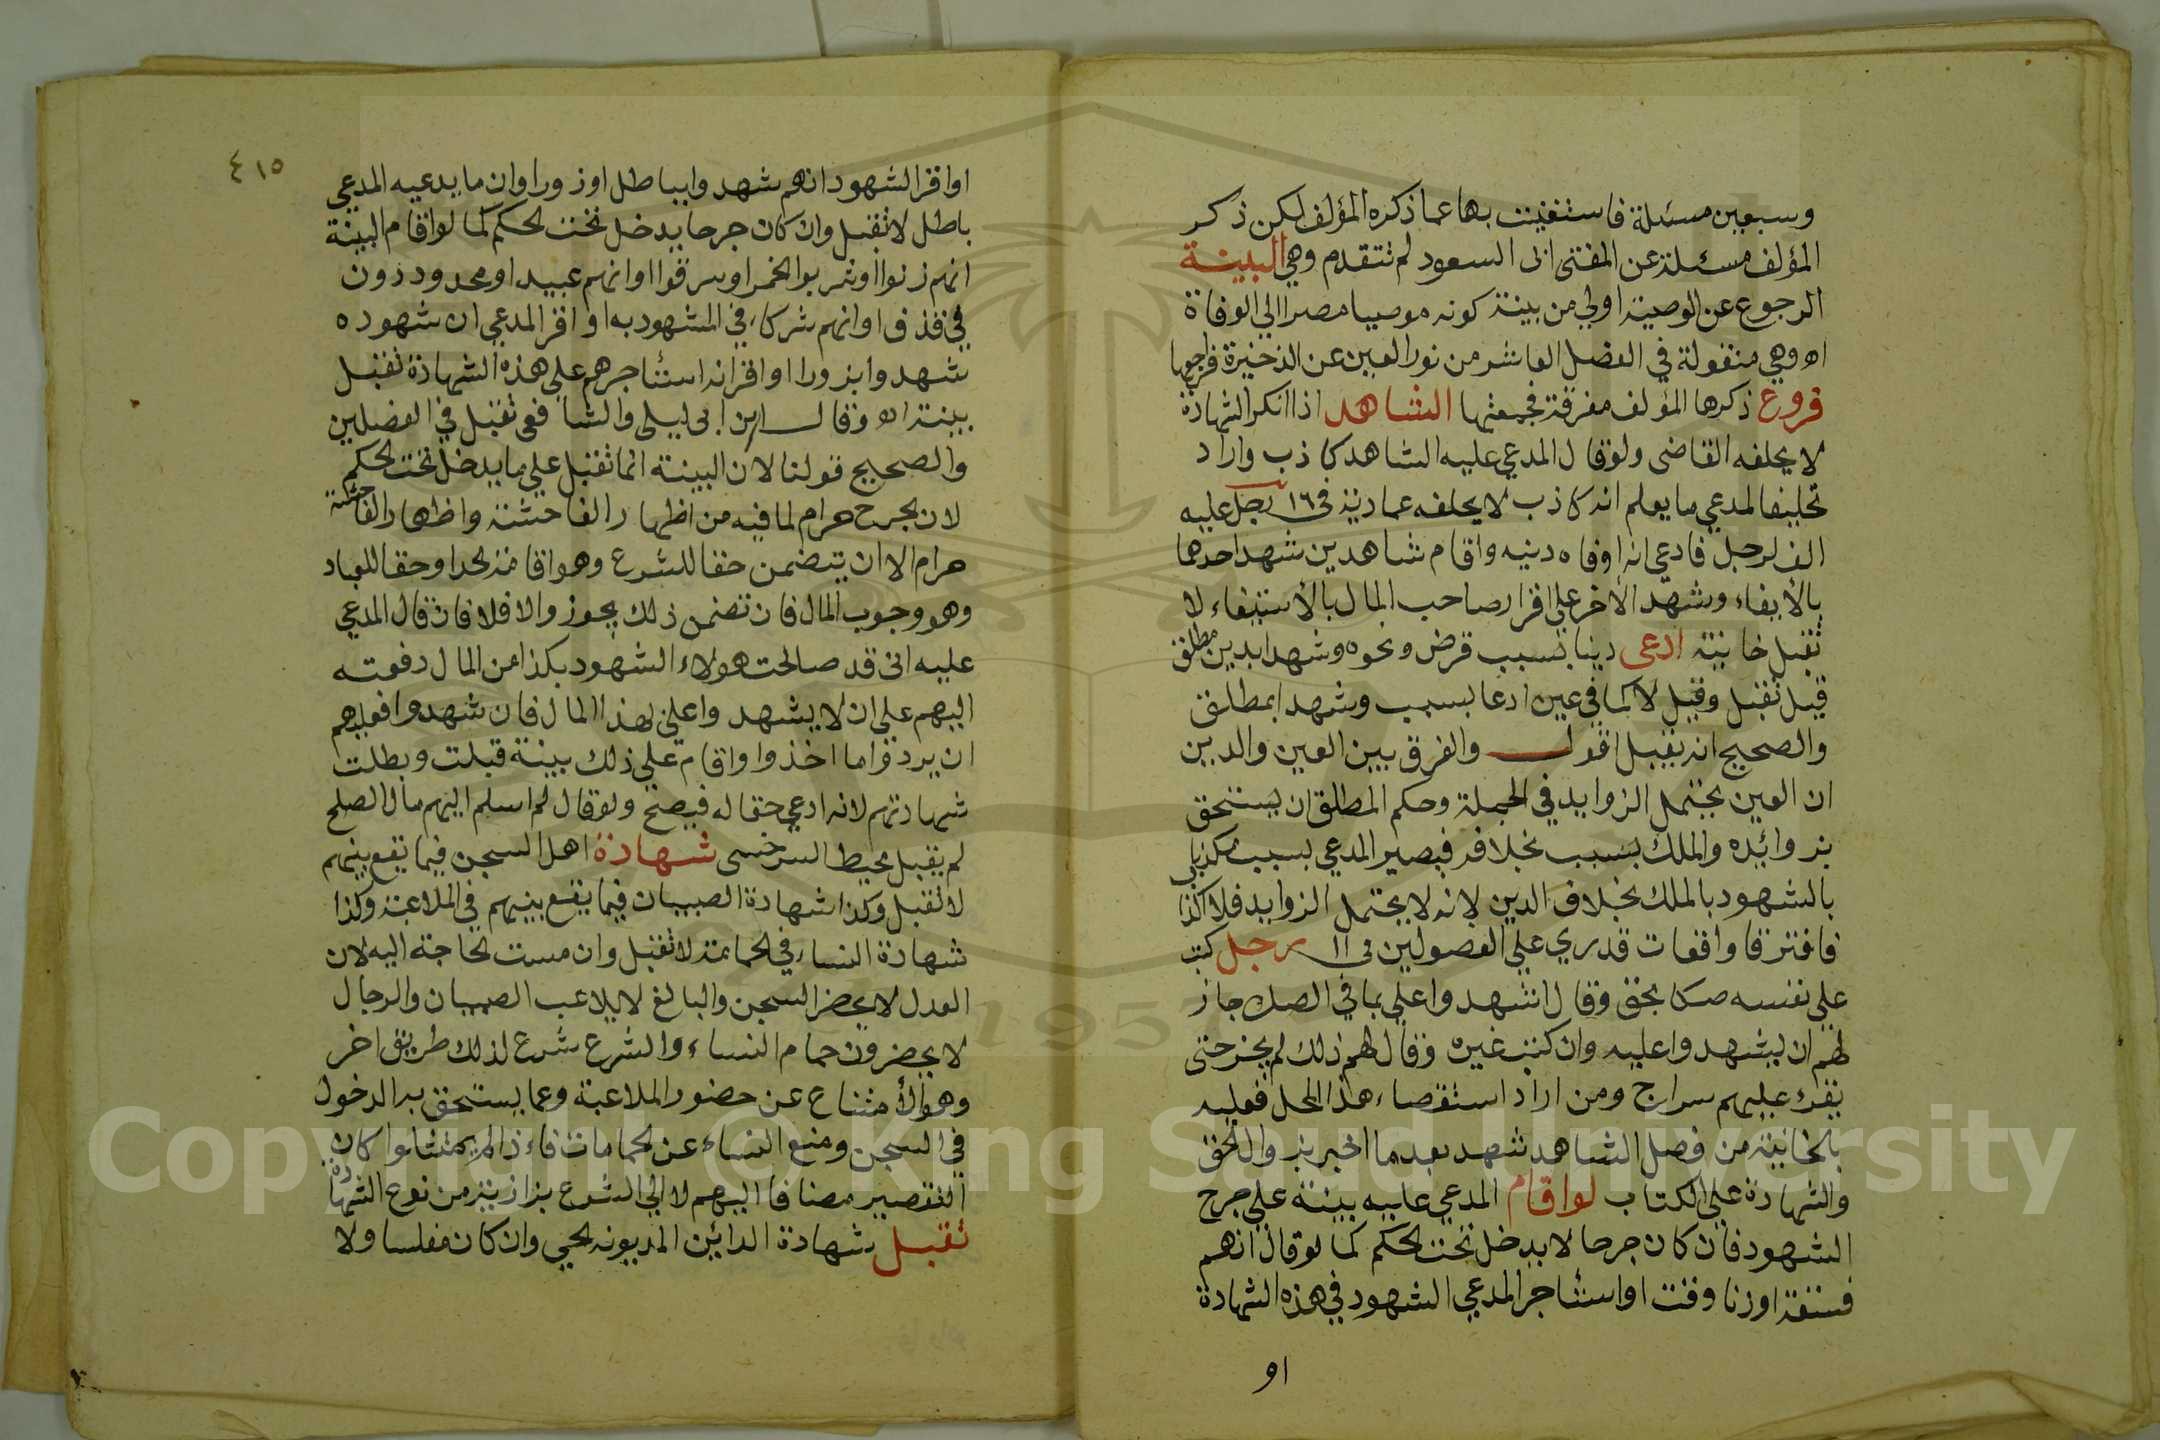 وسبعين مسئلة فاستغنيت بها عما ذكره المؤلف لكن ذكر
المؤلف مسئلة عن المفتى ابى السعود لم تتقدم وهي البينة
الرجوع عن الوصية اولي من بينة كونه موصيا مصرا الي الوفاة
اه وهي منقولة في الفصل العاشر من نور العين عن الذخيرة فراجعها
فروع ذكرها المؤلف مفرقة فجمعتها الشاهد اذا انكر الشهادة
لا يحلفه القاضى ولو قال المدعي عليه الشاهد كاذب واراد
تحليف المدعي ما يعلم انه كاذب لا يحلفه عمادية في ١٦ رجل عليه
الف لرجل فادعي انه اوفاه دينه واقام شاهدين شهد احدهما
بالأيفاء وشهد الأخر علي اقرار صاحب المال بالأستيفاء لا
تقبل خانية ادعى دينا بسبب قرض ونحوه وشهدا بدين مطلق
قيل تقبل وقيل لا كما في عين ادعا بسبب وشهدا بمطلق
والصحيح انه يقبل اقول والفرق بين العين والدين
ان العين تحتمل الزوايد في الجملة وحكم المطلق ان يستحق
بزوائده والملك بسبب بخلافه فيصير المدعي بسبب مكذبا
بالشهود بالملك بخلاف الدين لانه لا يحتمل الزوايد فلا اكذا
فافترقا واقعات قدري علي الفصولين في ١١ رجل كتب
علي نفسه صكا بحق وقال اشهدوا علي بما في الصك جاز
لهم ان يشهدوا عليه وان كتب غيره وقال لهم ذلك لم يجز حتى
يقرا عليهم سراج ومن اراد استقصاء هذا المحل فعليه
بالخانية من فصل الشاهد شهد بعدما اخبر بزوال الحق
والشهادة علي الكتاب لو اقام المدعي عليه بينة علي جرح
الشهود فان كان جرحا لا يدخل تحت الحكم كما لو قال انهم
فسقة او زنا وقت او استأجر المدعي الشهود في هذه الشهادة
او
٤١٥
او اقر الشهود انهم شهدوا بباطل او زورا وان ما يدعيه المدعي
باطل لا تقبل وان كان جرحا يدخل تحت الحكم كما لو اقام البينة
انهم زنوا او شربوا الخمر او سرقوا او انهم عبيد او محدودون
في قذف او انهم شركاء في المشهود به او اقر المدعي ان شهوده
شهدوا بزور او اقر انه استأجرهم علي هذه الشهادة تقبل
بينته اه وقال ابن ابى ليلى والشافعى تقبل في الفصلين
والصحيح قولنا لان البينة انما تقبل علي ما يدخل تحت الحكم
لان الجرح حرام لما فيه من اظهار الفاحشة واظهار الفاحشة
حرام الا ان يتضمن حقا للشرع وهو اقامة الحد او حقا للعباد
وهو وجوب المال فان تضمن ذلك يجوز والا فلا فان قال المدعي
عليه انى قد صالحت هولاء الشهود بكذا من المال دفعته
اليهم علي ان لا يشهدوا علي لهذا المال فان شهدوا فعليهم
ان يردوا ما اخذوا واقام علي ذلك بينة قبلت وبطلت
شهادتهم لانه ادعي حقا له فيصح ولو قال لم اسلم اليهم مال الصلح
لم يقبل محيط السرخسى شهادة اهل السجن فيما يقع بينهم
لا تقبل وكذا شهادة الصبيان فيما يقع بينهم في الملاعبة وكذا
شهادة النساء في الحمامة لا تقبل وان مست الحاجة اليه لان
العدل لا يحضر السجن والبالغ لا يلاعب الصبيان والرجال
لا يحضرون حمام النساء والشرع شرع لذلك طريق اخر
وهو الأمتناع عن حضور الملاعبة وعما يستحق به الدخول
في السجن ومنع النساء عن الحمامات فاءذا لم يمتثلوا كان
التقصير مضافا اليهم لا الي الشرع بزازية من نوع الشهادة
تقبل شهادة الدائن المديونه الحي وان كان مفلسا ولا
Copyright © King Saud University
1957